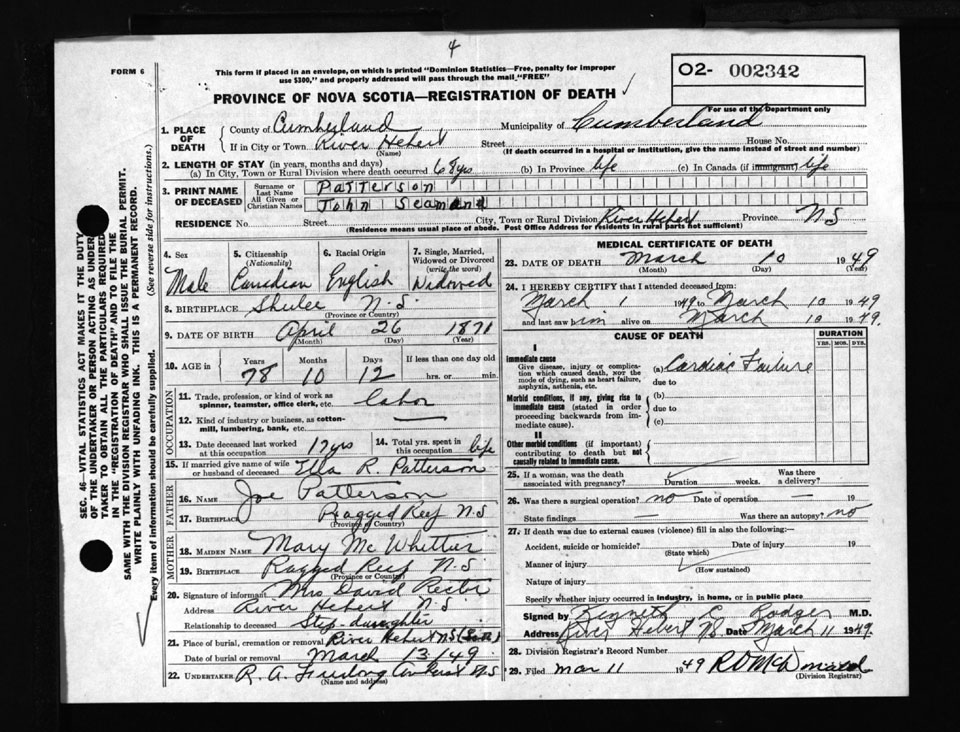 4
FORM 6
This form if placed in an envelope, on which is printed "Dominion Statistics—Free, penalty for improper
use $300," and properly addressed will pass through the mail "FREE"
O2- 002342
For use of the Department only
PROVINCE OF NOVA SCOTIA—REGISTRATION OF DEATH
1. PLACE OF DEATH
County of Cumberland Municipality of Cumberland
If in City or Town River Hebert Street House No.
(Name) (If death occurred in a hospital or institution, give the name instead of street and number)
2. LENGTH OF STAY (in years, months and days)
(a) In City, Town or Rural Division where death occurred 68 yrs (b) In Province life (c) In Canada (if immigrant) life
3. PRINT NAME OF DECEASED
Surname or Last Name Patterson
All Given or Christian Names John Seamans
RESIDENCE No. Street City, Town or Rural Division River Hebert Province N.S
(Residence means usual place of abode. Post Office Address for residents in rural parts not sufficient)
4. Sex
Male
5. Citizenship (Nationality)
Canadian
6. Racial Origin
English
7. Single, Married, Widowed or Divorced (write the word)
Widowed
8. BIRTHPLACE Shulee N.S.
(Province or Country)
9. DATE OF BIRTH April 26 1871
(Month) (Day) (Year)
10. AGE in Years Months Days If less than one day old
78 10 12 hrs. or min.
OCCUPATION
11. Trade, profession, or kind of work as spinner, teamster, office clerk, etc. Labor
12. Kind of industry or business, as cotton-mill, lumbering, bank, etc. —
13. Date deceased last worked at this occupation 17 yrs
14. Total yrs. spent in this occupation life
15. If married give name of wife or husband of deceased Ella R. Patterson
FATHER
16. NAME Joe Patterson
17. BIRTHPLACE Ragged Reef N.S
(Province or Country)
MOTHER
18. MAIDEN NAME Mary McWhittier
19. BIRTHPLACE Ragged Reef N.S
(Province or Country)
20. Signature of informant Mrs David
Address River Hebert N.S
Relationship to deceased Step-daughter
21. Place of burial, cremation or removal River Hebert N.S
Date of burial or removal March 13/49
22. UNDERTAKER R. A. Amherst N.S
(Name and address)
MEDICAL CERTIFICATE OF DEATH
23. DATE OF DEATH March 10 1949
(Month) (Day) (Year)
24. I HEREBY CERTIFY that I attended deceased from:
March 1 1949 to March 10 1949
and last saw him alive on March 10 1949.
CAUSE OF DEATH
DURATION
YRS. MOS. DYS.
I
Immediate cause
Give disease, injury or complication which caused death, not the mode of dying, such as heart failure, asphyxia, asthenia, etc.
(a) Cardiac Failure
due to
Morbid conditions, if any, giving rise to immediate cause (stated in order proceeding backwards from immediate cause).
(b)
due to
(c)
II
Other morbid conditions (if important) contributing to death but not causally related to immediate cause.
25. If a woman, was the death associated with pregnancy? Duration weeks. Was there a delivery?
26. Was there a surgical operation? no Date of operation — 19
State findings — Was there an autopsy? no
27. If death was due to external causes (violence) fill in also the following:—
Accident, suicide or homicide? Date of injury 19
(State which)
Manner of injury
(How sustained)
Nature of injury
Specify whether injury occurred in industry, in home, or in public place
Signed by Kenneth C Rodger M.D.
Address River Hebert NS Date March 11 1949.
28. Division Registrar's Record Number
29. Filed Mar 11 1949 R D McDonald
(Division Registrar)
SEC. 46—VITAL STATISTICS ACT MAKES IT THE DUTY
OF THE UNDERTAKER OR PERSON ACTING AS UNDER-
TAKER TO OBTAIN ALL THE PARTICULARS REQUIRED
IN THE "REGISTRATION OF DEATH" AND TO FILE THE
SAME WITH THE DIVISION REGISTRAR WHO SHALL ISSUE THE BURIAL PERMIT.
WRITE PLAINLY WITH UNFADING INK. THIS IS A PERMANENT RECORD.
Every item of information should be carefully supplied. (See reverse side for instructions.)